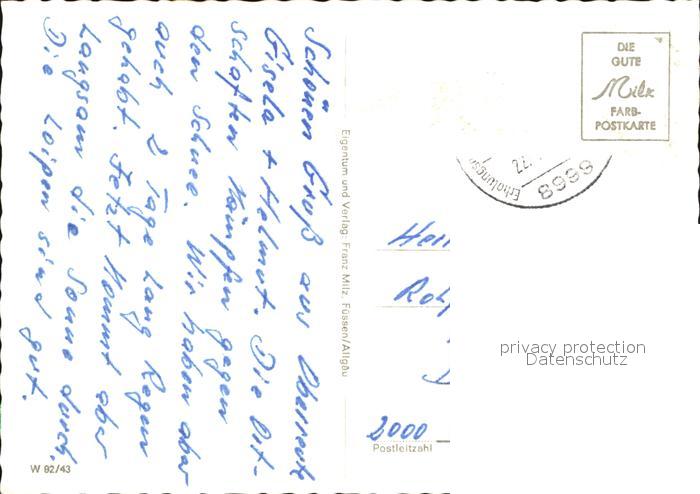 Schönen Gruß aus Oberreute
Gisela + Helmut. Die Ort-
schaften kämpfen gegen
den Schnee. Wir haben aber
auch 2 Tage lang Regen
gehabt. Jetzt kommt aber
langsam die Sonne durch.
Die Loipen sind gut.
Eigentum und Verlag: Franz Milz, Füssen/Allgäu
W 92/43
DIE
GUTE
Milz
FARB-
POSTKARTE
8999
22.
Erholungs
2000
Postleitzahl
privacy protection
Datenschutz